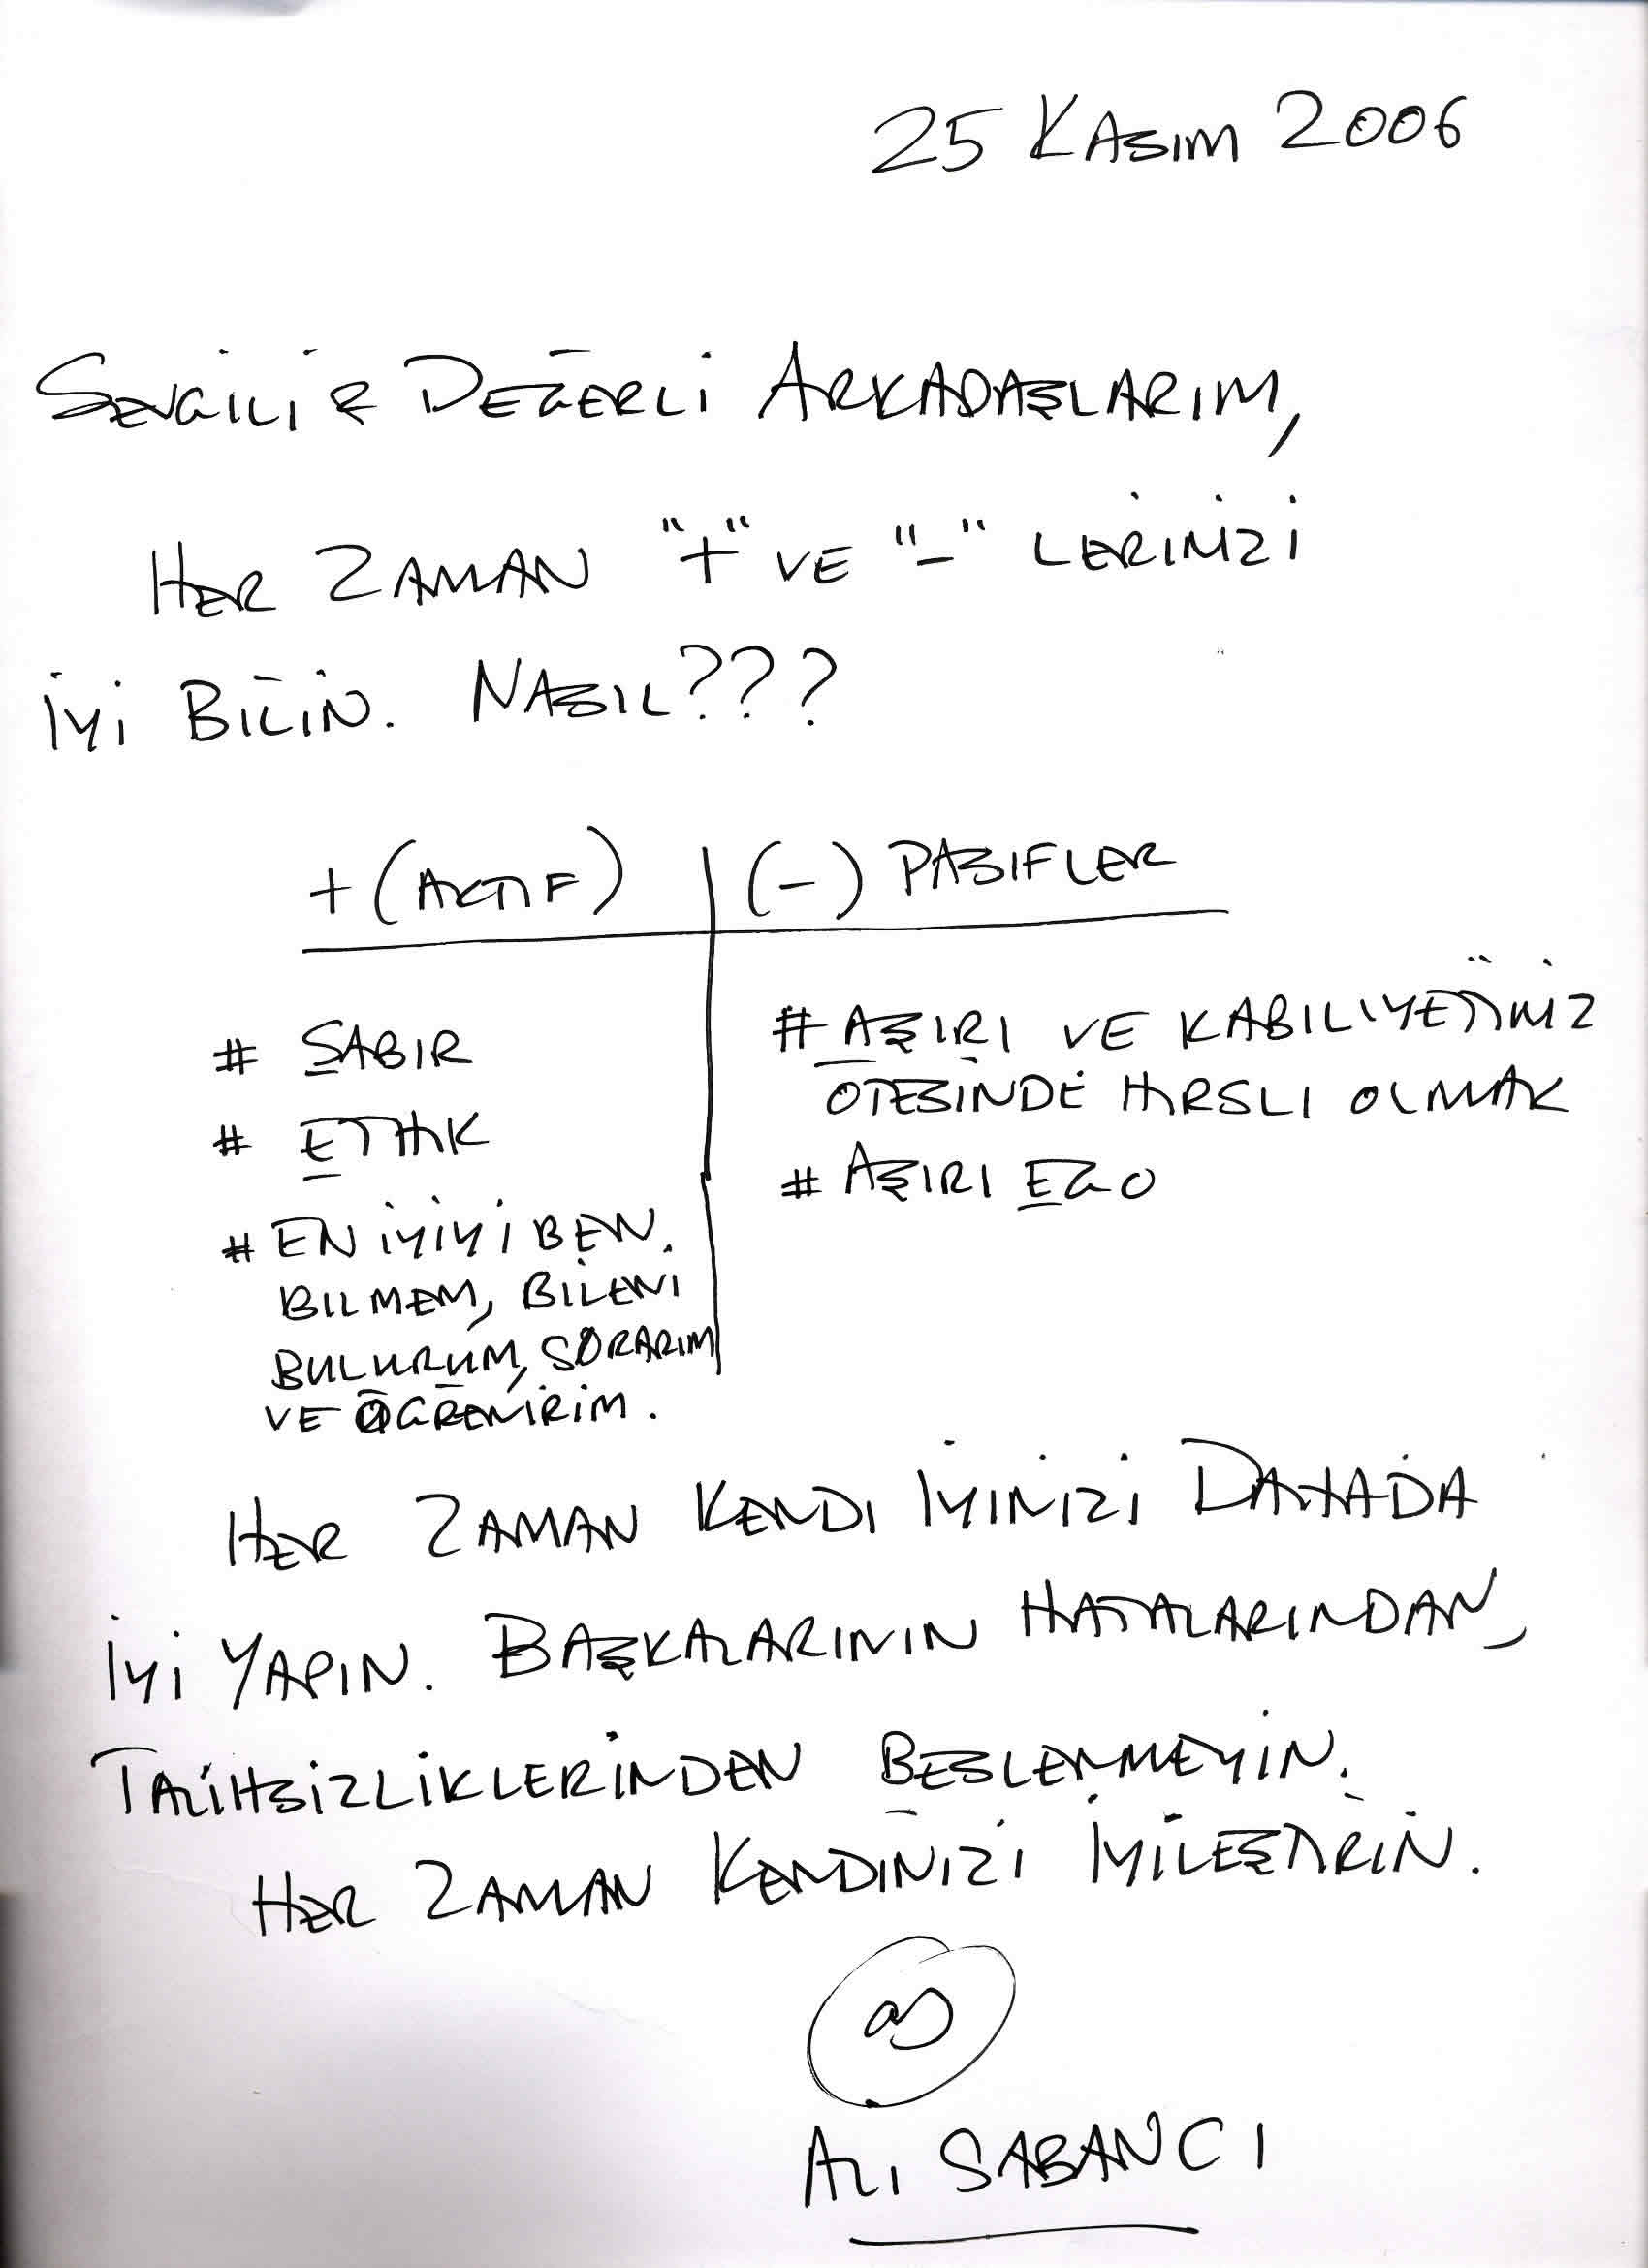 25 KASIM 2006
SEVGİLİ & DEĞERLİ ARKADAŞLARIM,
HER ZAMAN "+" VE "-" LERİNİZİ
İYİ BİLİN. NASIL???
+ (AKTİF) (-) PASIFLER
# SABIR
# ETHIK
# EN İYİYİ BEN
BILMEM, BİLENI
BULURUM, SORARIM
VE ÖĞRENİRİM.
# AŞIRI VE KABILIYETİNİZ
ÖTESİNDE HIRSLI OLMAK
# AŞIRI EGO
HER ZAMAN KENDI İYİNİZİ DAHADA
İYİ YAPIN. BAŞKALARININ HATALARINDAN,
TALİHSİZLİKLERİNDEN BESLENMEYİN.
HER ZAMAN KENDİNİZİ İYİLEŞTİRİN.
as
ALI SABANCI